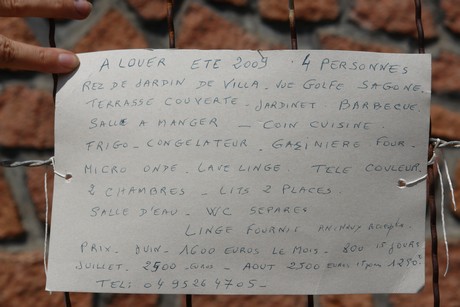 A LOUER ETE 2009 . 4 PERSONNES
REZ DE JARDIN DE VILLA. VUE GOLFE SAGONE.
TERRASSE COUVERTE - JARDINET BARBECUE.
SALLE A MANGER - COIN CUISINE.
FRIGO - CONGELATEUR. GAZINIERE FOUR.
MICRO ONDE. LAVE LINGE. TELE COULEUR.
2 CHAMBRES - LITS 2 PLACES.
SALLE D'EAU - WC SEPARES
LINGE FOURNIE ANIMAUX
PRIX - JUIN - 1600 EUROS LE MOIS - 800 15 JOURS
JUILLET - 2500 EUROS - AOUT 2500 EUROS 15 jours 1250
TEL: 04 95 26 47 05 -